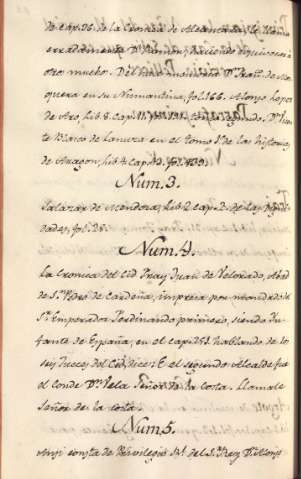 de cap. 36. de la Cronica de Alcantara
erradamente Dn.
otro mucho. Del Dn. Franco. de Mos
quera en su Numantina, fol. 166. Alonso Lopez
de Aro, lib 8. Cap.
te Blasco de Lanura en el tomo 1º de las historias
de Aragon, lib 4. Cap. fol.
Num. 3.
Salazar de Mendoza, lib 2 cap. 2. de las Digni
dades, fol. 28.
Num. 4.
La Cronica del Cid Fray Juan de Velorado, Abad
de Sn. Pedro de Cardeña, impresa por mandado del
Sr. Emperador Ferdinando primero, siendo Yn
fante de España, en el cap. hablando de los
seis Jueces del Cid, dice: E el segundo Alcalde fue
el Conde Dn. Vela Señor de la costa. Llamale
Señor de la costa
Num. 5.
consta de Privilegio del Sr. Rey Dn. Alonso